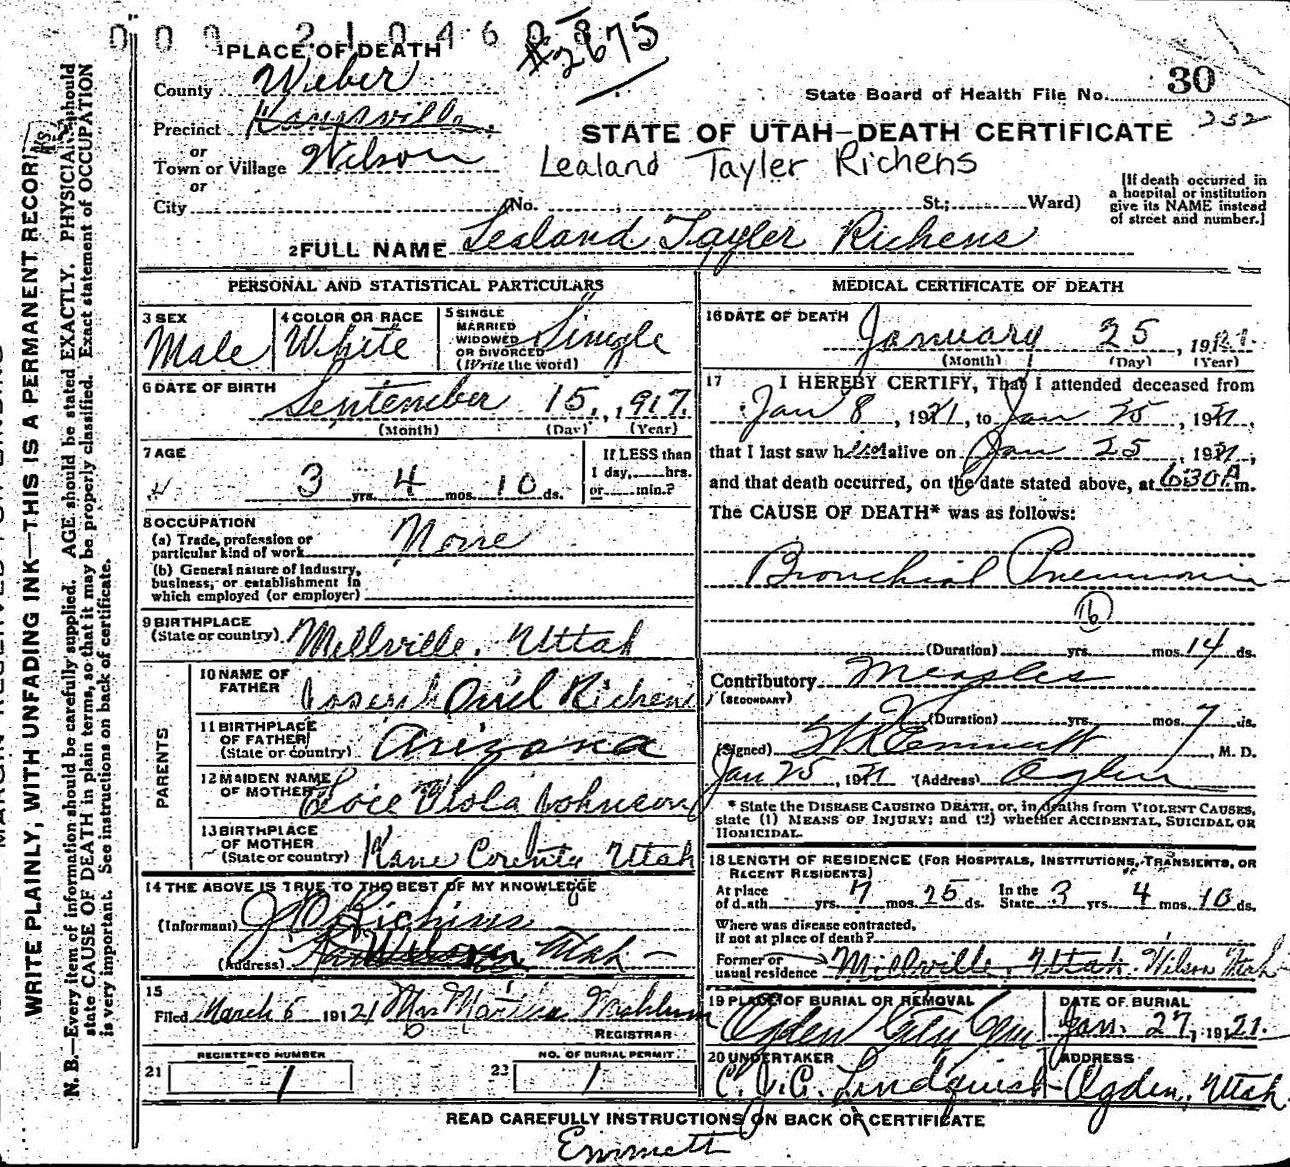 009 210460
#2675
8
1 PLACE OF DEATH
County Weber
State Board of Health File No. 30
252
Precinct Kanesville
or
Town or Village Wilson
or
City (No. St.; Ward)
STATE OF UTAH—DEATH CERTIFICATE
Lealand Tayler Richens
[If death occurred in
a hospital or institution
give its NAME instead
of street and number.]
2 FULL NAME Lealand Tayler Richens
PERSONAL AND STATISTICAL PARTICULARS
3 SEX Male
4 COLOR OR RACE White
5 SINGLE
MARRIED
WIDOWED
OR DIVORCED
(Write the word) Single
6 DATE OF BIRTH
September 15, 1917.
(Month) (Day) (Year)
7 AGE
3 yrs. 4 mos. 10 ds.
If LESS than
1 day, hrs.
or min.?
8 OCCUPATION
(a) Trade, profession or
particular kind of work None
(b) General nature of industry,
business, or establishment in
which employed (or employer)
9 BIRTHPLACE
(State or country) Millville, Uttah
PARENTS
10 NAME OF
FATHER Joseph Oriel Richens
11 BIRTHPLACE
OF FATHER
(State or country) Arizona
12 MAIDEN NAME
OF MOTHER Viola Johnson
13 BIRTHPLACE
OF MOTHER
(State or country) Kane County Utah
14 THE ABOVE IS TRUE TO THE BEST OF MY KNOWLEDGE
(Informant) J O Richins
(Address) Wilson Utah
15
Filed March 6 1921 Mrs Martha
REGISTRAR
21 REGISTERED NUMBER 1
22 NO. OF BURIAL PERMIT 1
MEDICAL CERTIFICATE OF DEATH
16 DATE OF DEATH
January 25, 1921.
(Month) (Day) (Year)
17 I HEREBY CERTIFY, That I attended deceased from
Jan 8, 1921, to Jan 25, 1921,
that I last saw him alive on Jan 25, 1921,
and that death occurred, on the date stated above, at 630A m.
The CAUSE OF DEATH* was as follows:
Bronchial Pneumonia
(Duration) yrs. mos. 14 ds.
Contributory Measles
(SECONDARY)
(Duration) yrs. mos. 7 ds.
(Signed) Emmett, M. D.
Jan 25, 1921 (Address) Ogden
* State the DISEASE CAUSING DEATH, or, in deaths from VIOLENT CAUSES,
state (1) MEANS OF INJURY; and (2) whether ACCIDENTAL, SUICIDAL OR
HOMICIDAL.
18 LENGTH OF RESIDENCE (FOR HOSPITALS, INSTITUTIONS, TRANSIENTS, OR
RECENT RESIDENTS)
At place
of death yrs. 7 mos. 25 ds. In the
State 3 yrs. 4 mos. 10 ds.
Where was disease contracted,
if not at place of death?
Former or
usual residence Millville, Uttah. Wilson Utah
19 PLACE OF BURIAL OR REMOVAL
Ogden City Cem
DATE OF BURIAL
Jan. 27, 1921.
20 UNDERTAKER
Lindquist
ADDRESS
Ogden, Utah
READ CAREFULLY INSTRUCTIONS ON BACK OF CERTIFICATE
Emmett
WRITE PLAINLY, WITH UNFADING INK—THIS IS A PERMANENT RECORD
N. B.—Every item of information should be carefully supplied. AGE should be stated EXACTLY. PHYSICIANS should
state CAUSE OF DEATH in plain terms, so that it may be properly classified. Exact statement of OCCUPATION
is very important. See instructions on back of certificate.